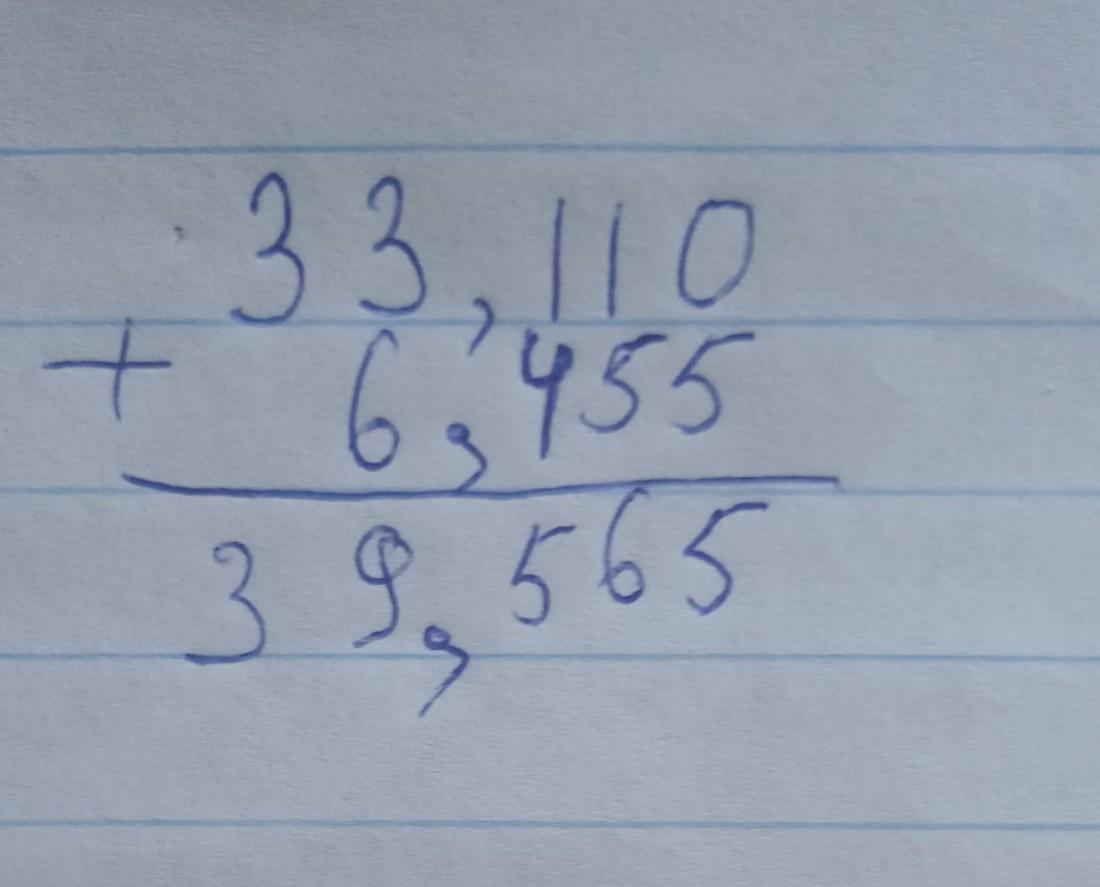 33,110
+ 6,455
39,565